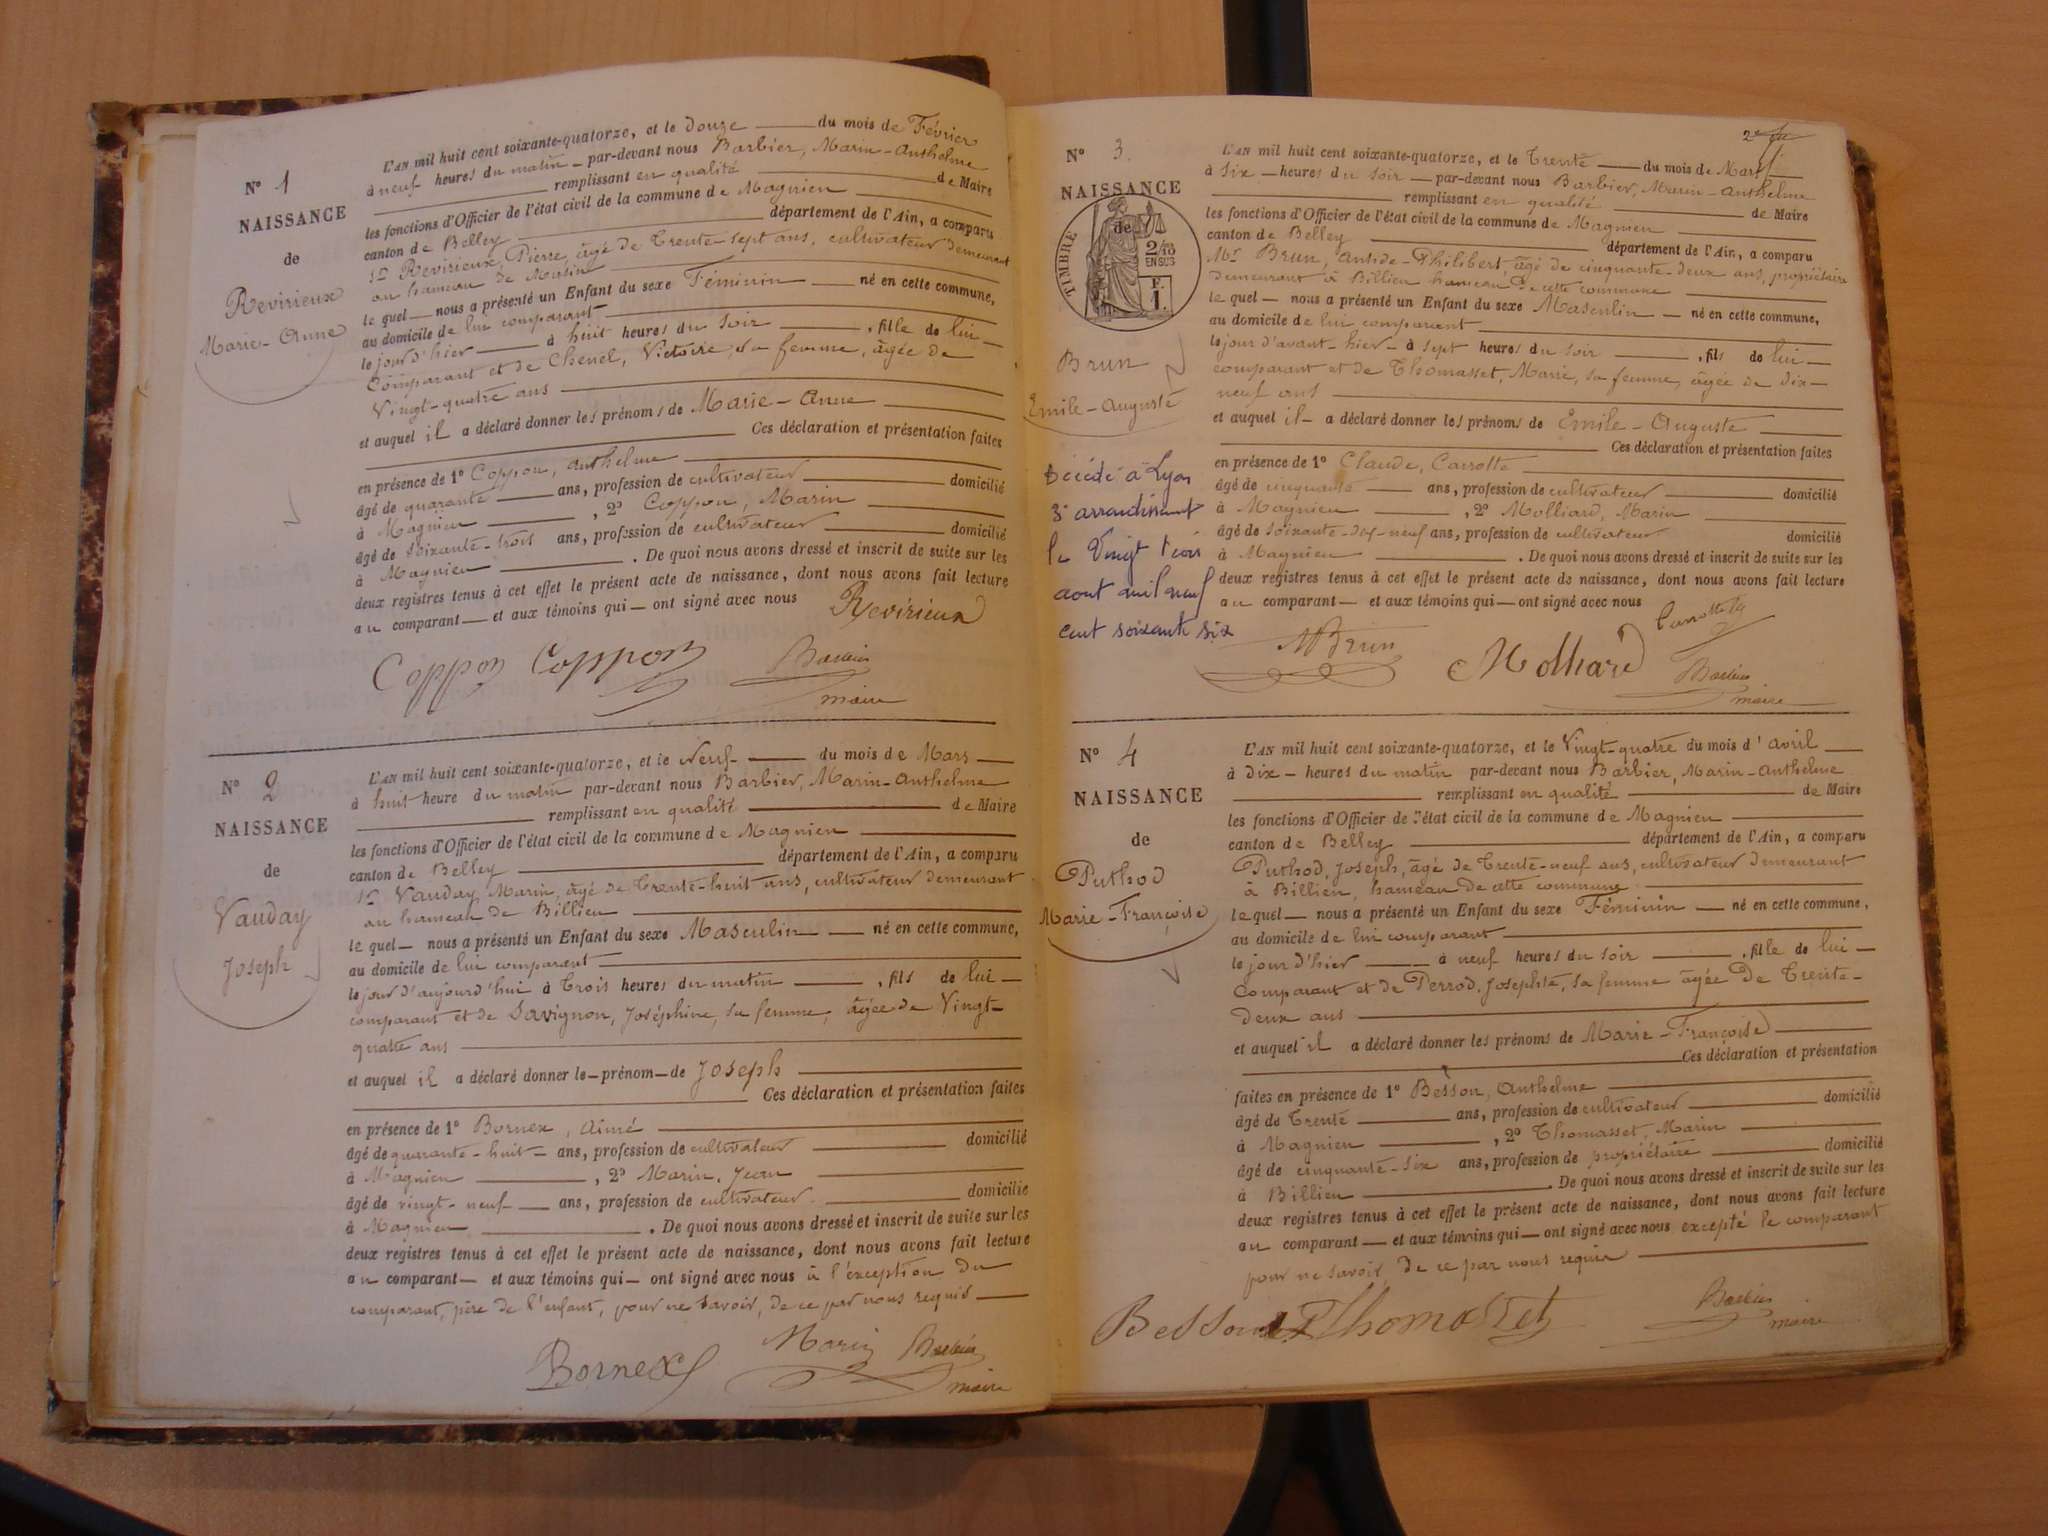 N° 1
NAISSANCE
de
Revirieux
Marie-Anne
L'AN mil huit cent soixante-quatorze, et le douze du mois de Février
à neuf heures du matin par-devant nous Barbier, Marin-Anthelme
remplissant en qualité de Maire
les fonctions d'Officier de l'état civil de la commune de Magnieu
canton de Belley département de l'Ain, a comparu
Sr Revirieux, Pierre, âgé de trente-sept ans, cultivateur demeurant
au hameau de
le quel nous a présenté un Enfant du sexe Féminin né en cette commune,
au domicile de lui comparant
le jour d'hier à huit heures du soir , fille de lui
comparant et de Chenel, Victoire sa femme, âgée de
Vingt-quatre ans
et auquel il a déclaré donner les prénoms de Marie-Anne
Ces déclaration et présentation faites
en présence de 1° Coppon, Anthelme
âgé de quarante ans, profession de cultivateur domicilié
à Magnieu , 2° Coppon, Marin
âgé de soixante-trois ans, profession de cultivateur domicilié
à Magnieu . De quoi nous avons dressé et inscrit de suite sur les
deux registres tenus à cet effet le présent acte de naissance, dont nous avons fait lecture
au comparant et aux témoins qui ont signé avec nous Revirieux
Coppon Coppon Barbier
maire
N° 2
NAISSANCE
de
Vauday
Joseph
L'AN mil huit cent soixante-quatorze, et le Neuf du mois de Mars
à huit heure du matin par-devant nous Barbier, Marin-Anthelme
remplissant en qualité de Maire
les fonctions d'Officier de l'état civil de la commune de Magnieu
canton de Belley département de l'Ain, a comparu
Sr Vauday Marin, âgé de trente-huit ans, cultivateur demeurant
au hameau de Billieu
le quel nous a présenté un Enfant du sexe Masculin né en cette commune,
au domicile de lui comparant
le jour d'aujourd'hui à trois heures du matin , fils de lui
comparant et de Savignon, Joséphine, sa femme, âgée de Vingt-
quatre ans
et auquel il a déclaré donner le prénom de Joseph
Ces déclaration et présentation faites
en présence de 1° Bornex, Aimé
âgé de quarante-huit ans, profession de cultivateur domicilié
à Magnieu , 2° Marin, Jean
âgé de vingt-neuf ans, profession de cultivateur domicilié
à Magnieu . De quoi nous avons dressé et inscrit de suite sur les
deux registres tenus à cet effet le présent acte de naissance, dont nous avons fait lecture
au comparant et aux témoins qui ont signé avec nous à l'éxception du
comparant, père de l'enfant, pour ne savoir, de ce par nous requis
Bornex Marin Barbier
maire
2e
N° 3
NAISSANCE
de
TIMBRE
2/10
EN SUS
F.
1.
Brun
Emile-Auguste
Décédé à Lyon
3e arrondissement
le Vingt trois
aout mil neuf
cent soixante six
L'AN mil huit cent soixante-quatorze, et le trente du mois de Mars
à six heures du soir par-devant nous Barbier, Marin-Anthelme
remplissant en qualité de Maire
les fonctions d'Officier de l'état civil de la commune de Magnieu
canton de Belley département de l'Ain, a comparu
Mr Brun, Antide-Philibert, âgé de cinquante-deux ans, propriétaire
demeurant à Billieu hameau de cette commune
le quel nous a présenté un Enfant du sexe Masculin né en cette commune,
au domicile de lui comparant
le jour d'avant-hier à sept heures du soir , fils de lui
comparant et de Thomasset, Marie, sa femme, âgée de dix-
neuf ans
et auquel il a déclaré donner les prénoms de Emile-Auguste
Ces déclaration et présentation faites
en présence de 1° Claude, Carrotte
âgé de cinquante ans, profession de cultivateur domicilié
à Magnieu , 2° Molliard, Marin
âgé de soixante-dix-neuf ans, profession de cultivateur domicilié
à Magnieu . De quoi nous avons dressé et inscrit de suite sur les
deux registres tenus à cet effet le présent acte de naissance, dont nous avons fait lecture
au comparant et aux témoins qui ont signé avec nous
Brun Molliard Barbier
maire
N° 4
NAISSANCE
de
Puthod
Marie-Françoise
L'AN mil huit cent soixante-quatorze, et le Vingt-quatre du mois d'avril
à dix heures du matin par-devant nous Barbier, Marin-Anthelme
remplissant en qualité de Maire
les fonctions d'Officier de l'état civil de la commune de Magnieu
canton de Belley département de l'Ain, a comparu
Puthod, Joseph, âgé de trente-neuf ans, cultivateur demeurant
à Billieu, hameau de cette commune
le quel nous a présenté un Enfant du sexe Féminin né en cette commune,
au domicile de lui comparant
le jour d'hier à neuf heures du soir , fille de lui
comparant et de Perrod, Josephte, sa femme âgée de trente-
deux ans
et auquel il a déclaré donner les prénoms de Marie-Françoise
Ces déclaration et présentation
faites en présence de 1° Besson, Anthelme
âgé de trente ans, profession de cultivateur domicilié
à Magnieu , 2° Thomasset, Marin
âgé de cinquante-six ans, profession de propriétaire domicilié
à Billieu . De quoi nous avons dressé et inscrit de suite sur les
deux registres tenus à cet effet le présent acte de naissance, dont nous avons fait lecture
au comparant et aux témoins qui ont signé avec nous excepté le comparant
pour ne savoir, de ce par nous requis
Besson Thomasset Barbier
maire